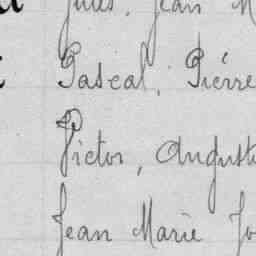 Jules, Jean M
Pascal, Pierre
Victor, Auguste
Jean Marie Jo